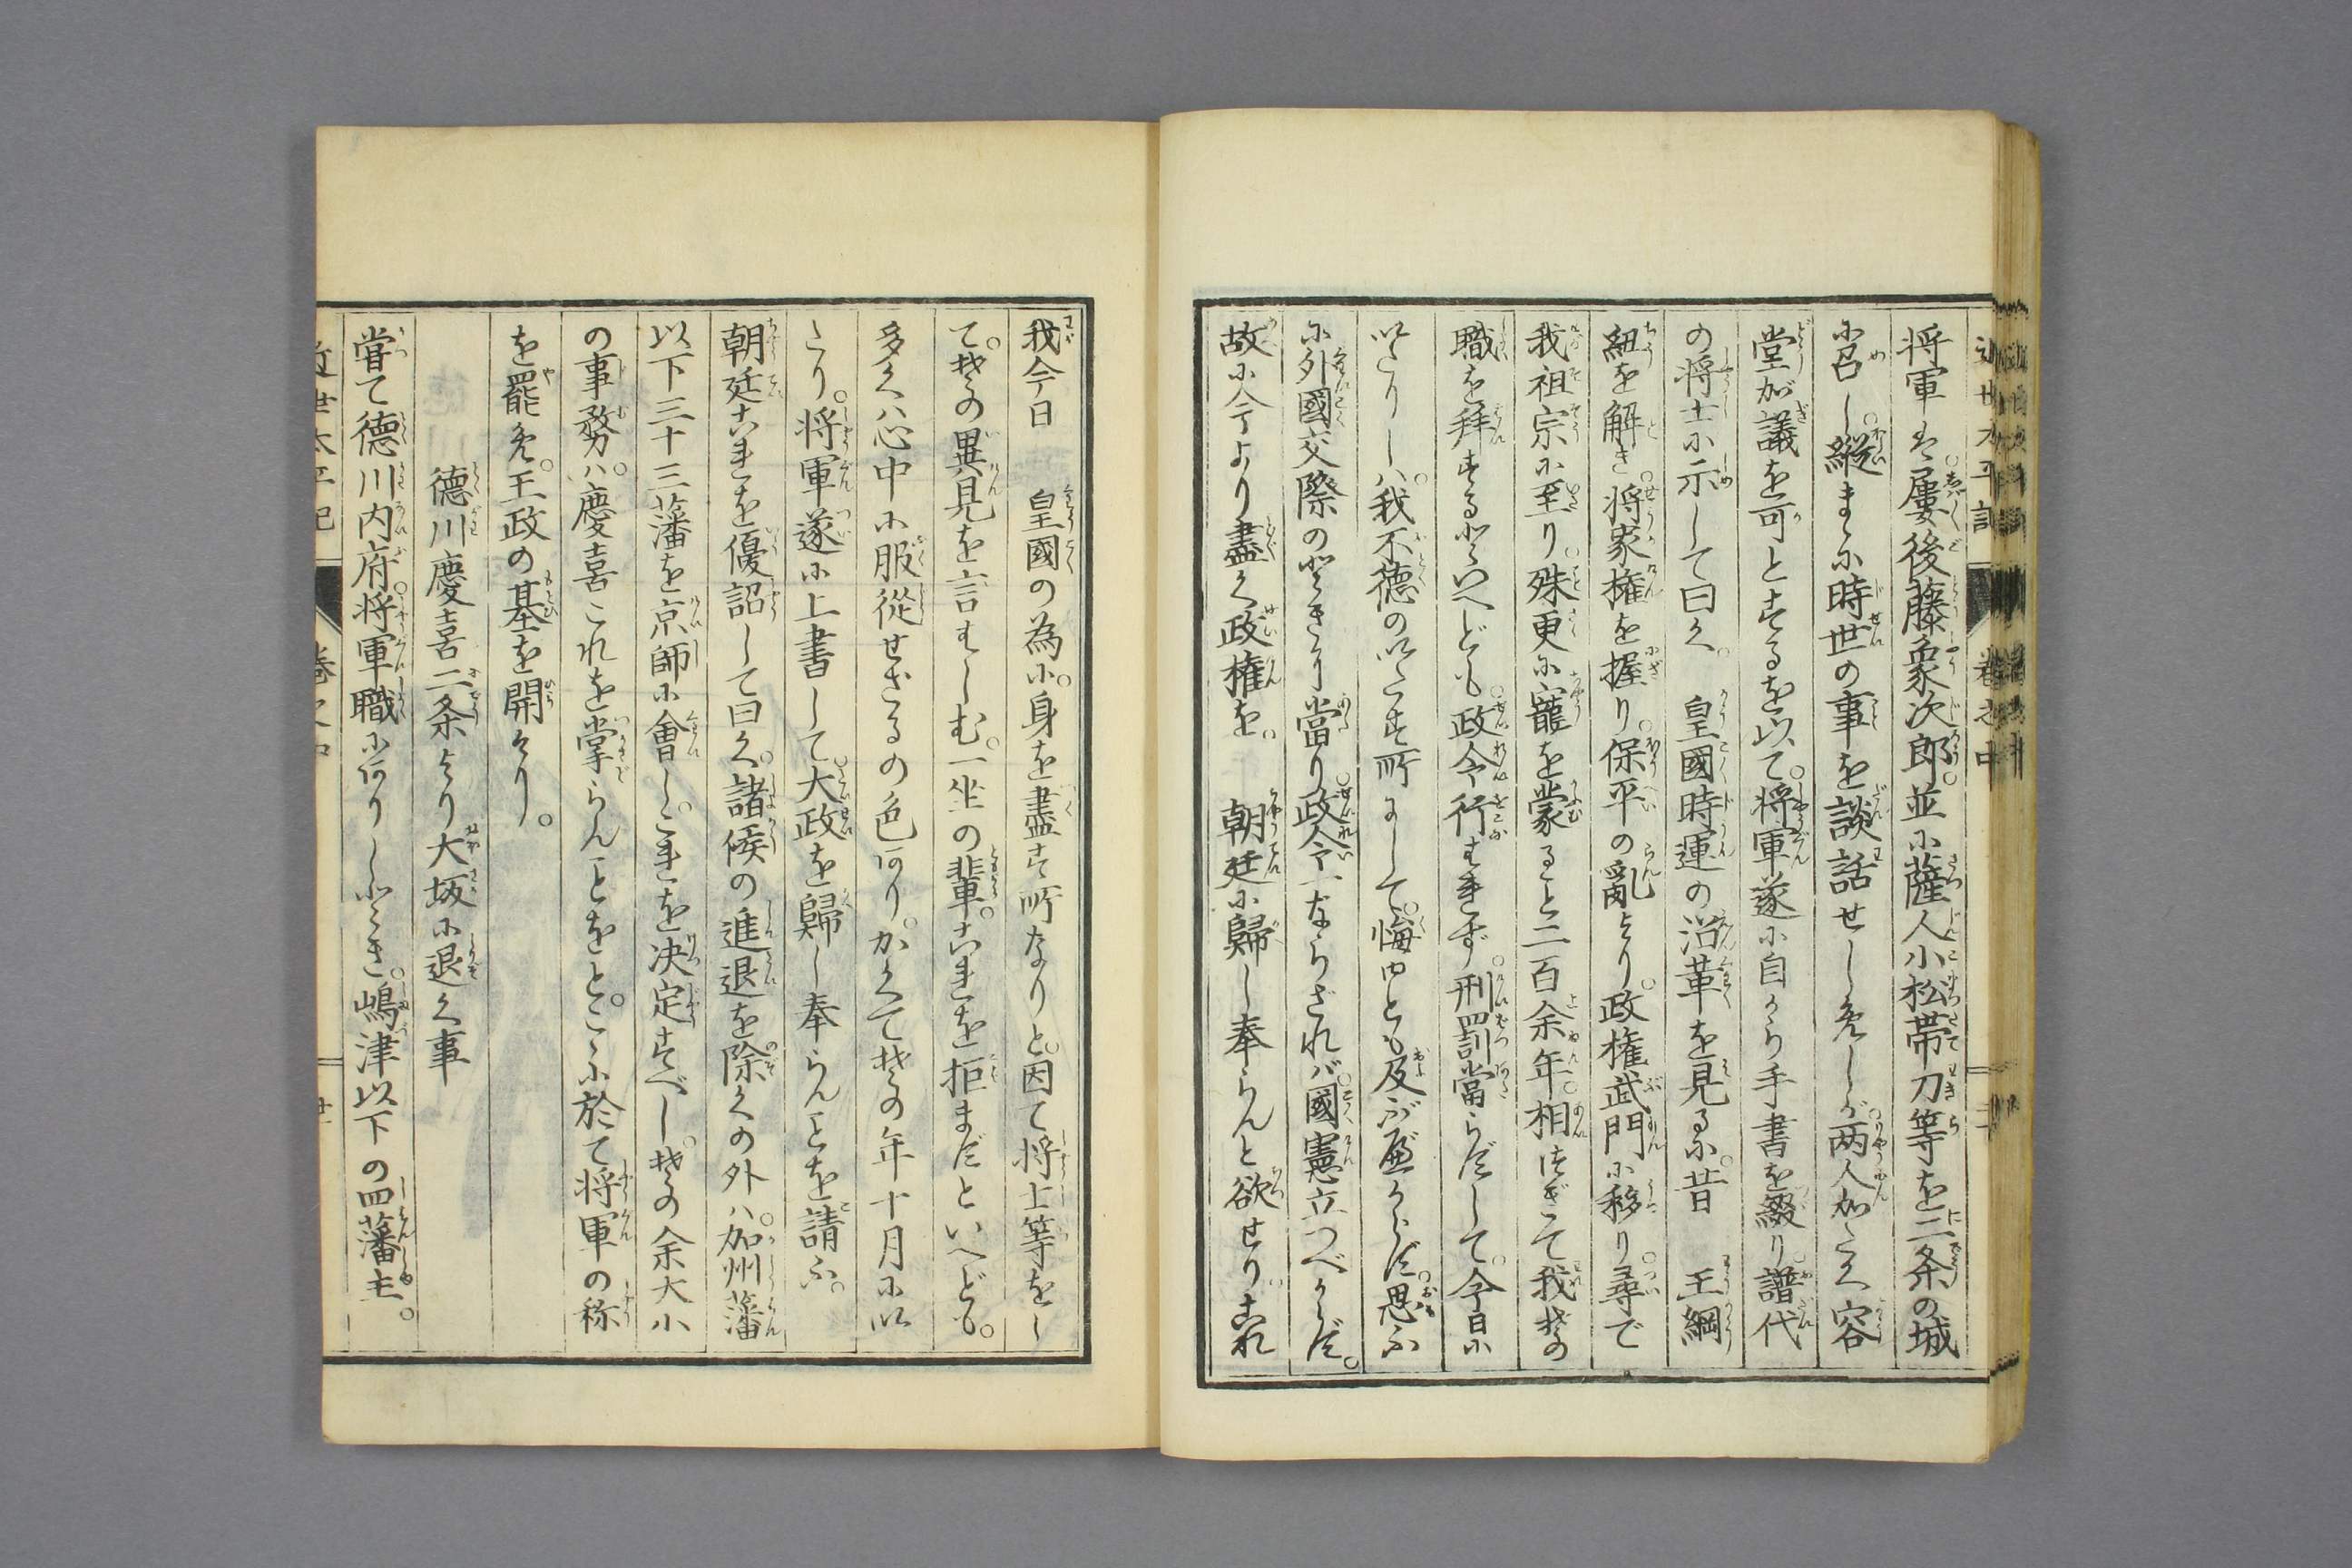 将軍は屢後藤象次郎。並に薩人小松帯刀等を二条の城
に召し縦まゝに時世の事を談話せしめしが両人加たく容
堂が議を可とするを以て将軍遂に自から手書を綴り譜代
の将士に示して曰く。皇國時運の沿革を見るに。昔 王綱
紐を解き将家権を握り保平の乱より。政権武門に移り尋で
我祖宗に至り殊更に寵を蒙ること二百余年。相つぎて我その
職を拝するといへども政令行はれず刑罰當らずして。今日に
いたりしハ我不徳のいたす所にして。悔ゆとも及ぶべからず思ふ
に外國交際のときり當り政令一ならざれバ國憲立つべからず。
故に今より盡く政権を。 朝廷に歸し奉らんと欲せりこれ
我今日 皇國の為に。身を盡す所なりと。因て将士等をし
て。その異見を言はしむ。一坐の輩。これを拒まずといへども。
多くハ心中に服從せざるの色あり。かくてその年十月に以
たり。将軍遂に上書して大政を歸し奉らんことを請ふ。
朝廷これを優詔して曰く。諸侯の進退を除くの外ハ。加州藩
以下三十三藩を京師に會し。これを决定すべし。その余大小
の事務ハ。慶喜これを掌らんことをと。こゝに於て将軍の称
を罷め。王政の基を開けり。
徳川慶喜二条より大坂に退く事
甞て徳川内府。将軍職にありしとき。嶋津以下の四藩主。
近世太平記 巻之中
近世太平記 巻之中